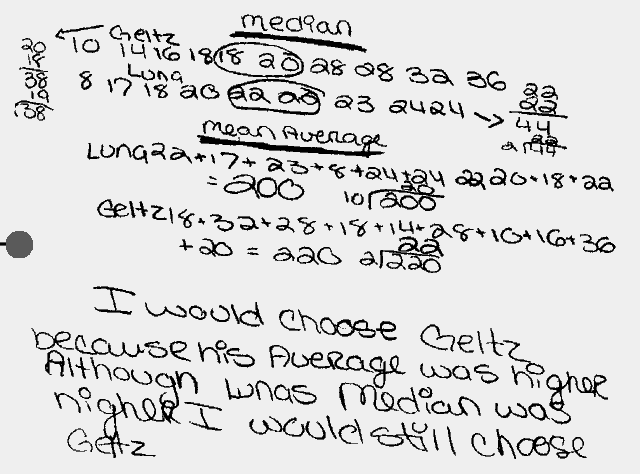 median
Geltz
10 14 16 18 18 20 28 28 32 36
Luna
8 17 18 20 22 22 23 24 24
22
22
44
22
2√44
20
18
38
mean Average
Luna 22+17+23+8+24+24 22 20+18+22
= 200 10√200
20
Geltz 18+32+28+18+14+28+10+16+36
+20 = 220 2√220
22
I would choose Geltz
because his Average was higher
Although Lunas Median was
higher I would still choose
Geltz